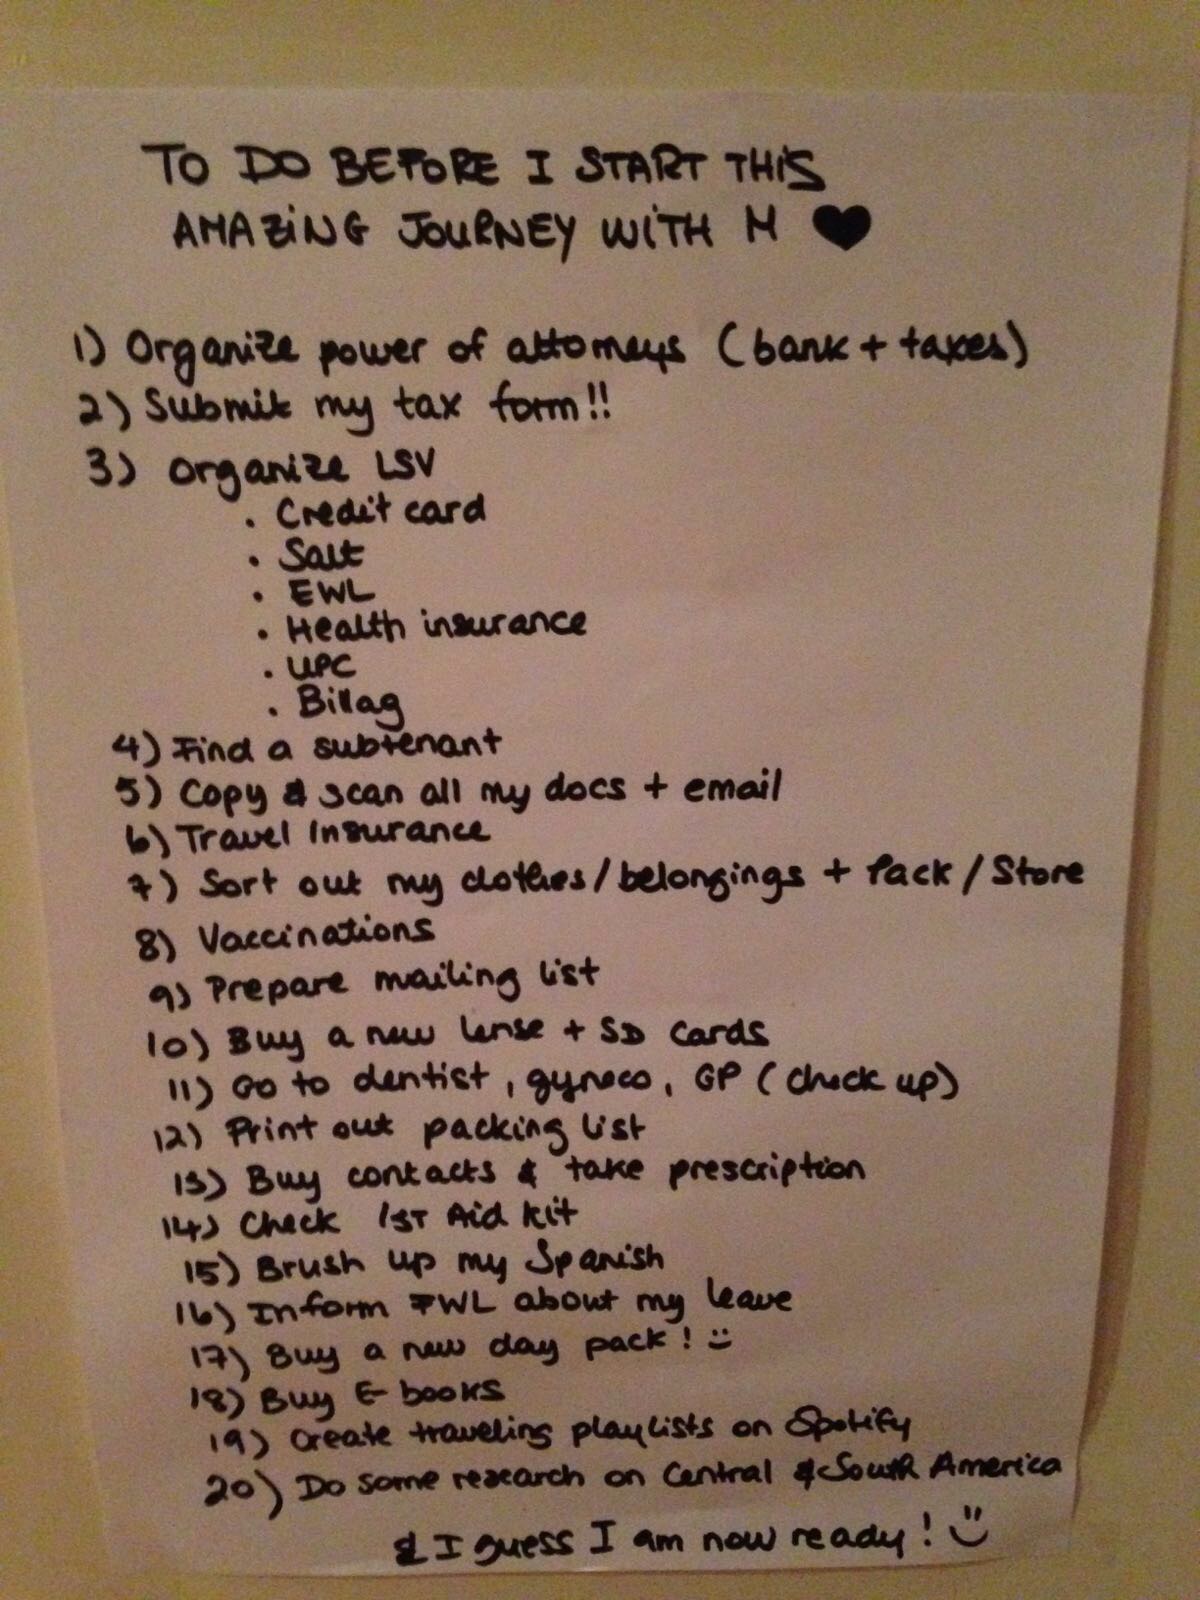 TO DO BEFORE I START THIS
AMAZING JOURNEY WITH M ♥
1) Organize power of attorneys (bank + taxes)
2) Submit my tax form!!
3) Organize LSV
. Credit card
. Salt
. EWL
. Health insurance
. UPC
. Billag
4) Find a subtenant
5) Copy & scan all my docs + email
6) Travel Insurance
7) Sort out my clothes/belongings + Pack / Store
8) Vaccinations
9) Prepare mailing list
10) Buy a new lense + SD cards
11) Go to dentist, gyneco, GP (check up)
12) Print out packing list
13) Buy contacts & take prescription
14) Check 1ST Aid kit
15) Brush up my Spanish
16) Inform FWL about my leave
17) Buy a new day pack! :)
18) Buy E-books
19) Create traveling playlists on Spotify
20) Do some research on Central & South America
& I guess I am now ready! :)